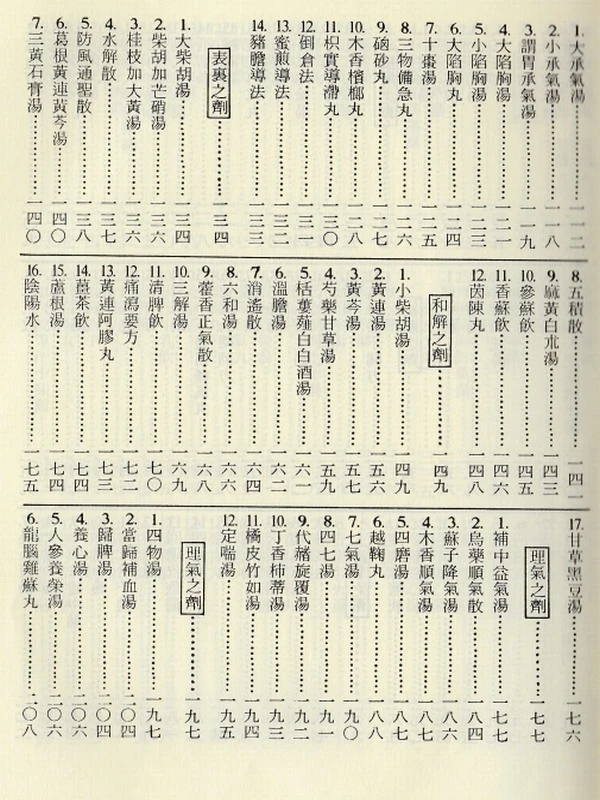 1. 大承氣湯……………一一二
2. 小承氣湯……………一一八
3. 謂胃承氣湯……………一一九
4. 大陷胸湯……………一二一
5. 小陷胸湯……………一二三
6. 大陷胸丸……………一二四
7. 十棗湯……………一二五
8. 三物備急丸……………一二六
9. 硇砂丸……………一二七
10. 木香檳榔丸……………一二八
11. 枳實導滯丸……………一三〇
12. 倒倉法……………一三一
13. 蜜煎導法……………一三二
14. 豬膽導法……………一三三
表裏之劑……………一三四
1. 大柴胡湯……………一三四
2. 柴胡加芒硝湯……………一三六
3. 桂枝加大黃湯……………一三六
4. 水解散……………一三七
5. 防風通聖散……………一三八
6. 葛根黃連黃芩湯……………一四〇
7. 三黃石膏湯……………一四〇
8. 五積散……………一四一
9. 麻黃白朮湯……………一四三
10. 參蘇飲……………一四五
11. 香蘇飲……………一四六
12. 茵陳丸……………一四八
和解之劑……………一四九
1. 小柴胡湯……………一四九
2. 黃連湯……………一五六
3. 黃芩湯……………一五七
4. 芍藥甘草湯……………一五九
5. 栝蔞薤白白酒湯……………一六一
6. 溫膽湯……………一六二
7. 消遙散……………一六四
8. 六和湯……………一六六
9. 藿香正氣散……………一六八
10. 三解湯……………一六九
11. 清脾飲……………一七〇
12. 痛瀉要方……………一七二
13. 黃連阿膠丸……………一七三
14. 薑茶飲……………一七四
15. 蘆根湯……………一七四
16. 陰陽水……………一七五
17. 甘草黑豆湯……………一七六
理氣之劑……………一七七
1. 補中益氣湯……………一七七
2. 烏藥順氣散……………一八四
3. 蘇子降氣湯……………一八六
4. 木香順氣湯……………一八七
5. 四磨湯……………一八七
6. 越鞠丸……………一八八
7. 七氣湯……………一九〇
8. 四七湯……………一九一
9. 代赭旋覆湯……………一九二
10. 丁香柿蒂湯……………一九三
11. 橘皮竹如湯……………一九四
12. 定喘湯……………一九五
理氣之劑……………一九七
1. 四物湯……………一九七
2. 當歸補血湯……………二〇四
3. 歸脾湯……………二〇四
4. 養心湯……………二〇六
5. 人參養榮湯……………二〇六
6. 龍腦雞蘇丸……………二〇八